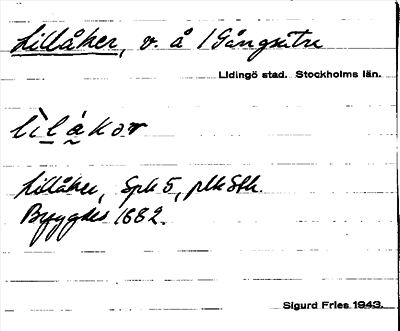 Lillåker, v. å / Gångsätra
Lidingö stad. Stockholms län.
lìlákor
Lillåker, Spk 5, plk Sth.
Byggdes 1882.
Sigurd Fries 1943.